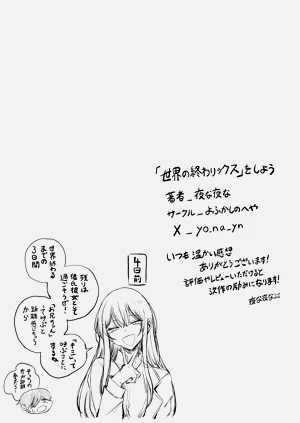 「世界の終わリックス」をしよう
著者_夜な夜な
サークル_よふかしのへや
X_yo_na_yn
いつも温かい感想
ありがとうございます!
評価やレビューいただけると
次作の励みになります!
夜な夜な
4日前
残りは
彼氏彼女として
過ごそうぜ!
「キミ」って
呼ぶことに
するね
「お兄ちゃん」
だと
距離感じちゃう
から
世界終わる
までの
3日間